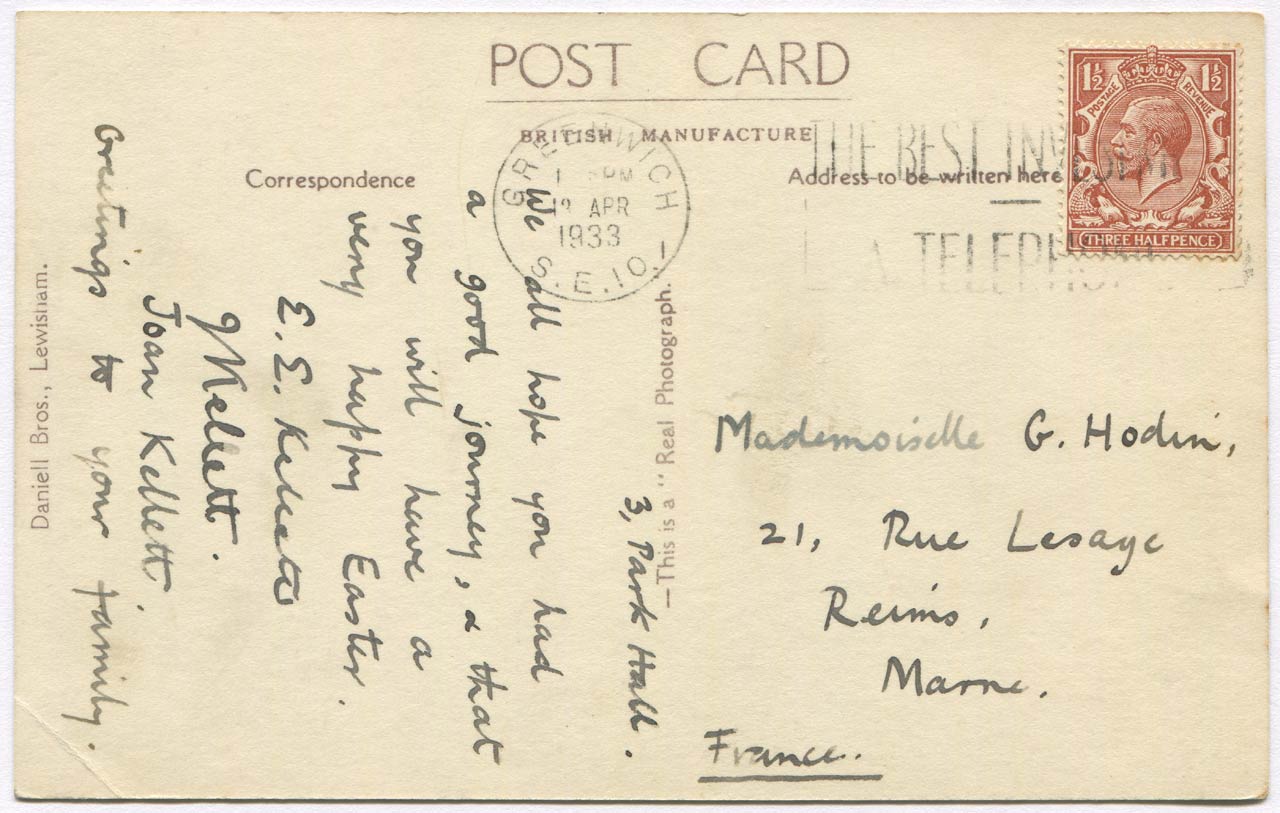 POST CARD
BRITISH MANUFACTURE
Correspondence
Address to be written here
1½ 1½
POSTAGE REVENUE
THREE HALFPENCE
GREENWICH
PM
APR
1933
S.E.10.
THE BEST
A TELEPH
3, Park Hall.
We all hope you had
a good journey, & that
you will have a
very happy Easter.
E. E. Kellett
Kellett.
Joan Kellett.
Greetings to your family.
Mademoiselle G. Hodin,
21, Rue Lesage
Reims,
Marne.
France.
—This is a "Real Photograph."
Daniell Bros., Lewisham.